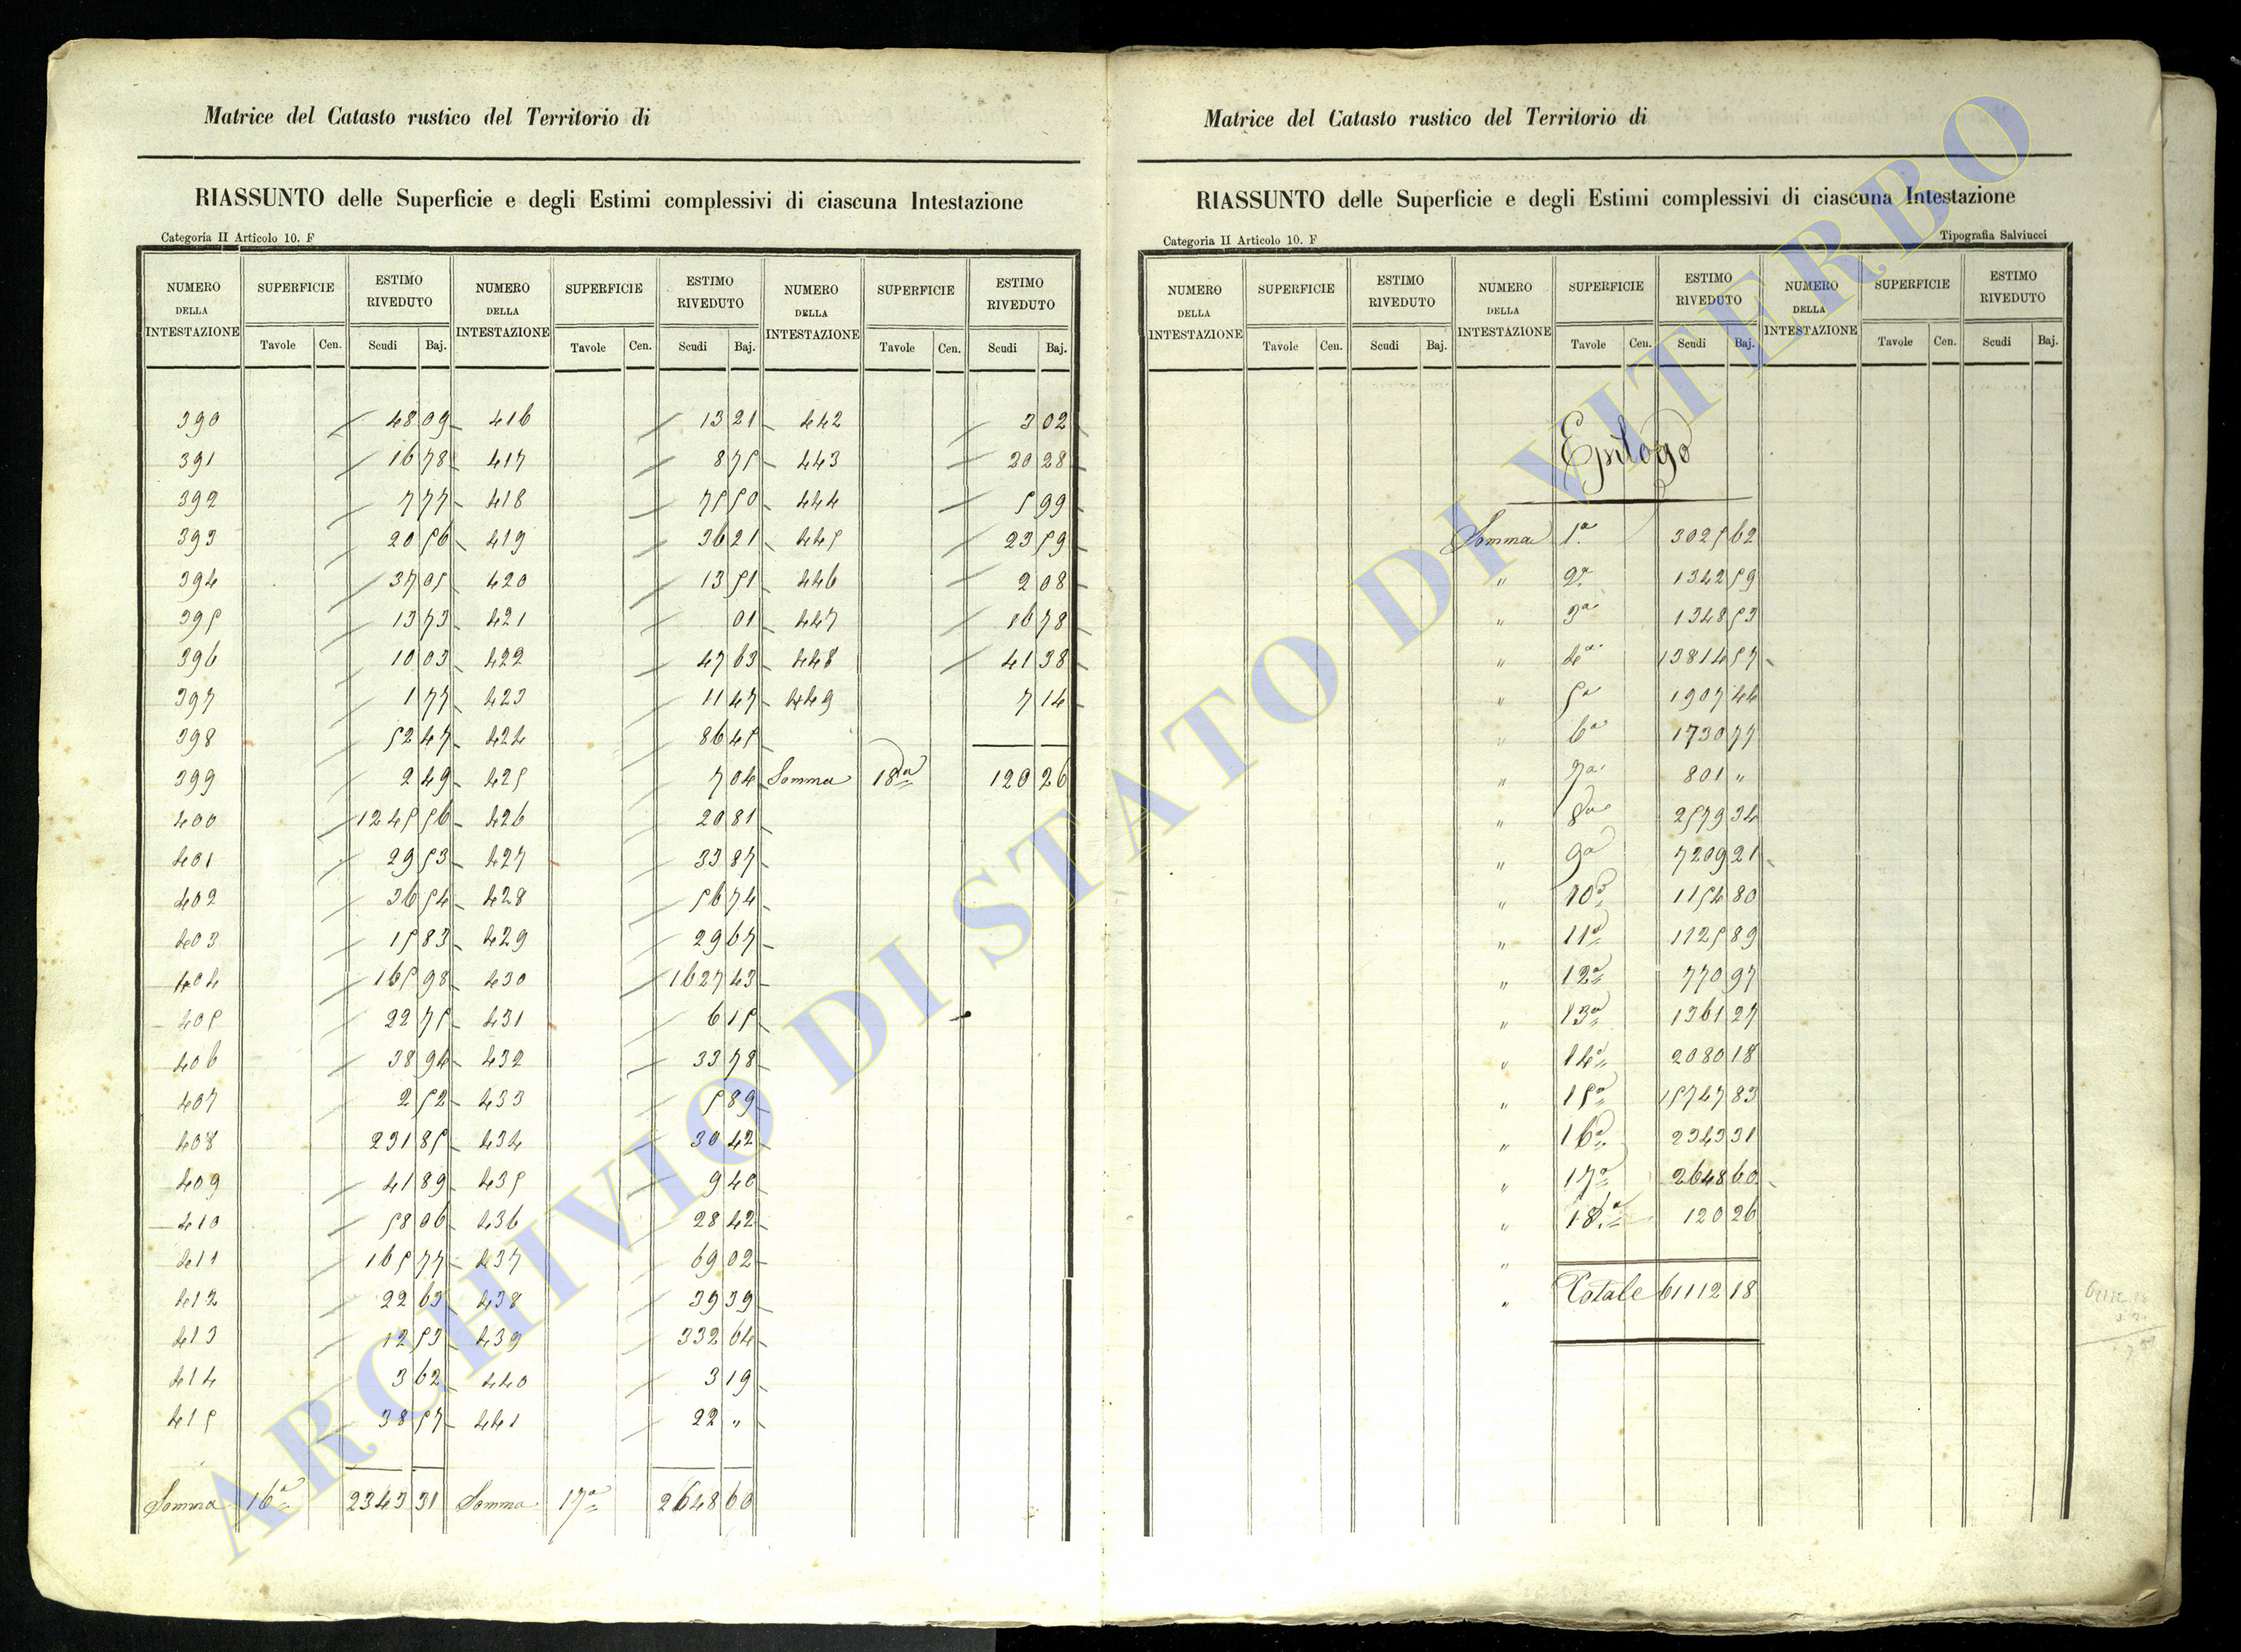 Matrice del Catasto rustico del Territorio di
RIASSUNTO delle Superficie e degli Estimi complessivi di ciascuna Intestazione
Categoria II Articolo 10. F
NUMERO DELLA INTESTAZIONE SUPERFICIE ESTIMO RIVEDUTO NUMERO DELLA INTESTAZIONE SUPERFICIE ESTIMO RIVEDUTO NUMERO DELLA INTESTAZIONE SUPERFICIE ESTIMO RIVEDUTO
Tavole Cen. Scudi Baj. Tavole Cen. Scudi Baj. Tavole Cen. Scudi Baj.
390 48 09 416 13 21 442 3 02
391 16 78 417 8 75 443 20 28
392 7 77 418 75 50 444 5 99
393 20 56 419 36 21 445 23 59
394 37 05 420 13 51 446 2 08
395 13 73 421 01 447 16 78
396 10 03 422 47 63 448 41 38
397 1 77 423 11 47 449 7 14
398 52 47 424 86 45
399 2 49 425 7 04 Somma 18a 120 26
400 1245 56 426 20 81
401 29 53 427 33 87
402 36 54 428 56 74
403 15 83 429 29 67
404 165 98 430 1627 43
405 22 75 431 6 15
406 38 94 432 33 78
407 2 52 433 5 89
408 231 85 434 30 42
409 41 89 435 9 40
410 58 06 436 28 42
411 165 77 437 69 02
412 22 63 438 39 39
413 12 53 439 332 64
414 3 62 440 3 19
415 38 57 441 22 "
Somma 16a 2343 31 Somma 17a 2648 60
Matrice del Catasto rustico del Territorio di
RIASSUNTO delle Superficie e degli Estimi complessivi di ciascuna Intestazione
Categoria II Articolo 10. F Tipografia Salviucci
NUMERO DELLA INTESTAZIONE SUPERFICIE ESTIMO RIVEDUTO NUMERO DELLA INTESTAZIONE SUPERFICIE ESTIMO RIVEDUTO NUMERO DELLA INTESTAZIONE SUPERFICIE ESTIMO RIVEDUTO
Tavole Cen. Scudi Baj. Tavole Cen. Scudi Baj. Tavole Cen. Scudi Baj.
Epilogo
Somma 1a 3025 62
" 2a 1342 59
" 3a 1348 53
" 4a 13814 57
" 5a 1907 44
" 6a 1730 77
" 7a 801 "
" 8a 2579 34
" 9a 7209 21
" 10a 1154 80
" 11a 1125 89
" 12a 770 97
" 13a 1361 27
" 14a 2080 18
" 15a 15747 83
" 16a 2343 31
" 17a 2648 60
" 18a 120 26
"
" Totale 61112 18
ARCHIVIO DI STATO DI VITERBO